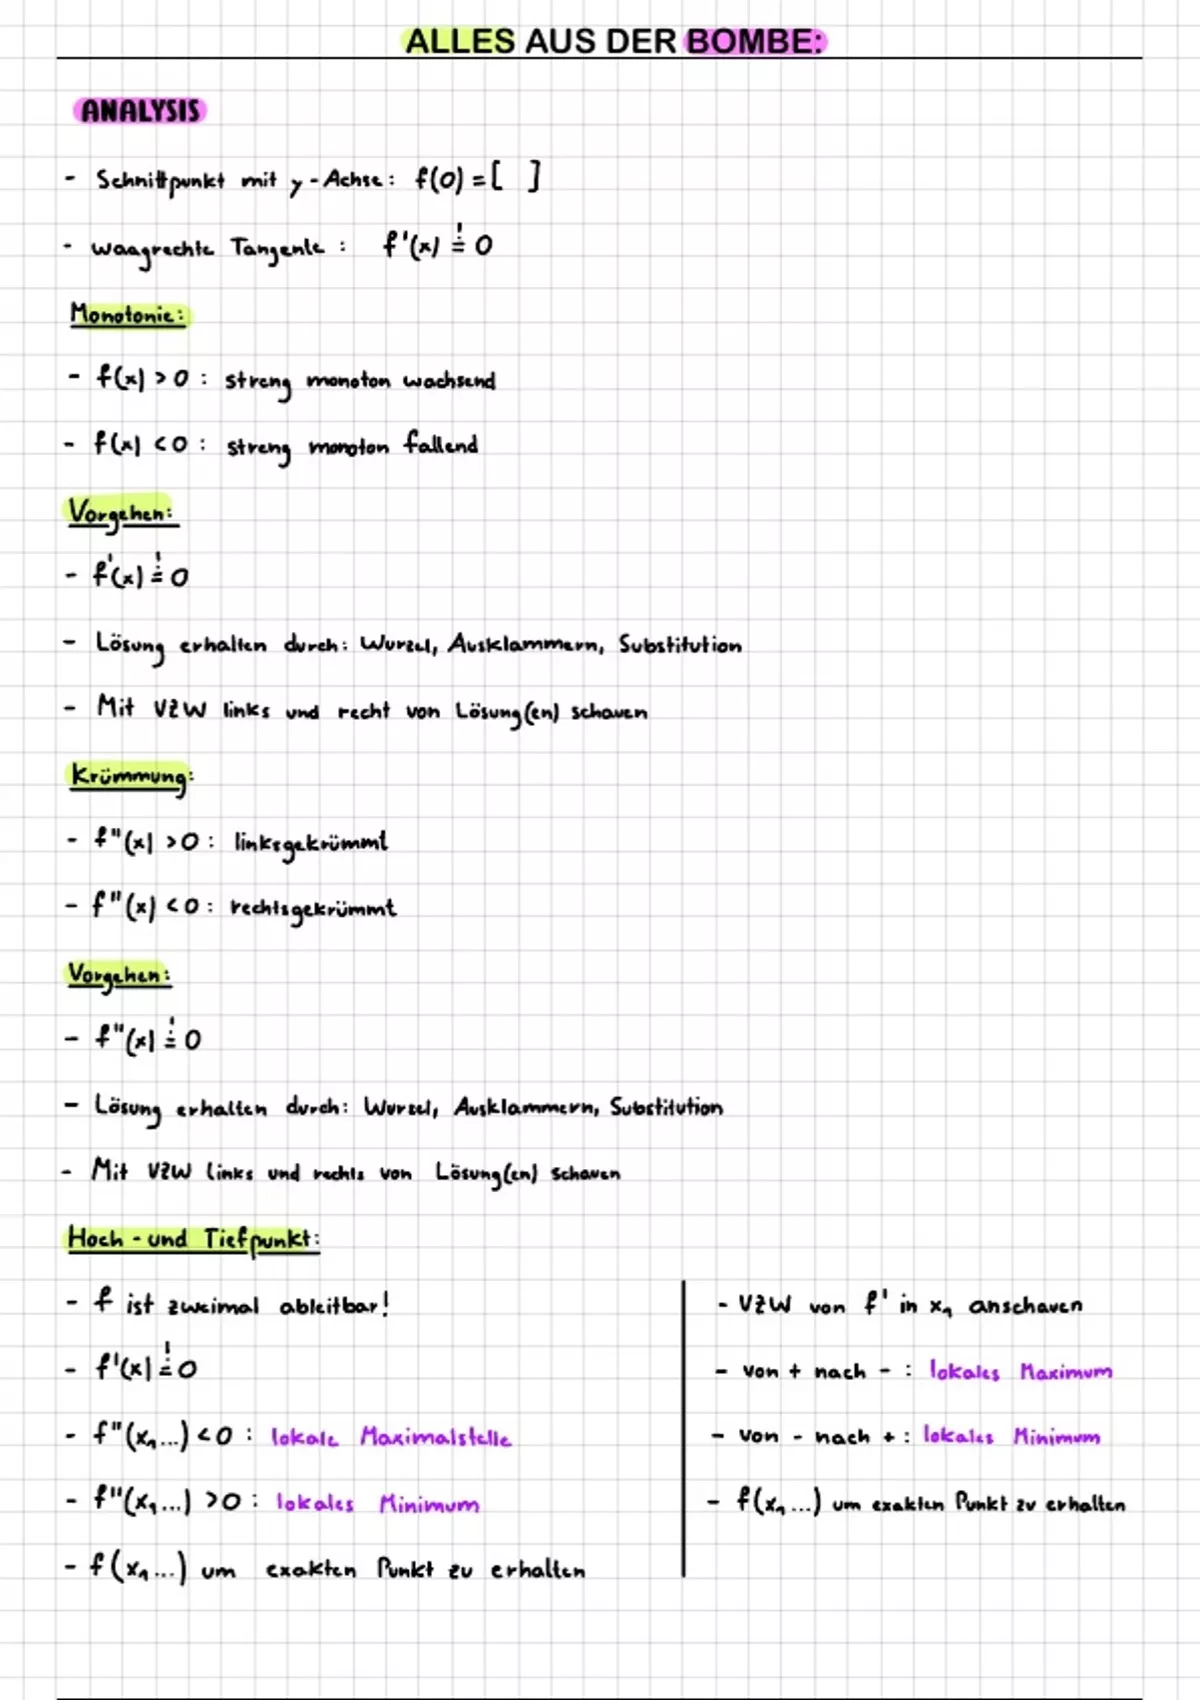 ALLES AUS DER BOMBE:
ANALYSIS
- Schnittpunkt mit y-Achse: f(0) = [ ]
- waagrechte Tangente: f'(x) != 0
Monotonie:
- f(x) > 0: streng monoton wachsend
- f(x) < 0: streng monoton fallend
Vorgehen:
- f'(x) != 0
- Lösung erhalten durch: Wurzel, Ausklammern, Substitution
- Mit VZW links und recht von Lösung(en) schauen
Krümmung:
- f"(x) > 0: linksgekrümmt
- f"(x) < 0: rechtsgekrümmt
Vorgehen:
- f"(x) != 0
- Lösung erhalten durch: Wurzel, Ausklammern, Substitution
- Mit VZW links und rechts von Lösung(en) schauen
Hoch- und Tiefpunkt:
- f ist zweimal ableitbar!
- f'(x) != 0
- f"(x₁...) < 0: lokale Maximalstelle
- f"(x₁...) > 0: lokales Minimum
- f(x₁...) um exakten Punkt zu erhalten
- VZW von f' in x₁ anschauen
- von + nach -: lokales Maximum
- von - nach +: lokales Minimum
- f(x₁...) um exakten Punkt zu erhalten